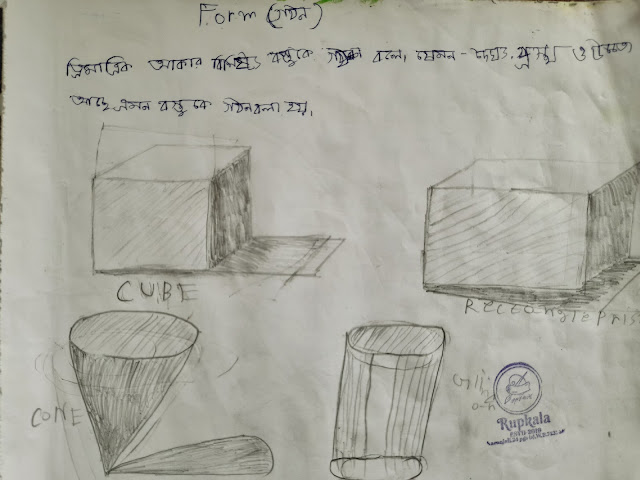 Form (গঠন)
ত্রিমাত্রিক আকার বিশিষ্ট বস্তুকে গঠন বলে। যেমন - দৈর্ঘ্য, প্রস্থ ও উচ্চতা
আছে এমন বস্তুকে গঠন বলা হয়।
CUBE
RECTANGLE PRIS
CONE
Rupkala
ESTD-2019